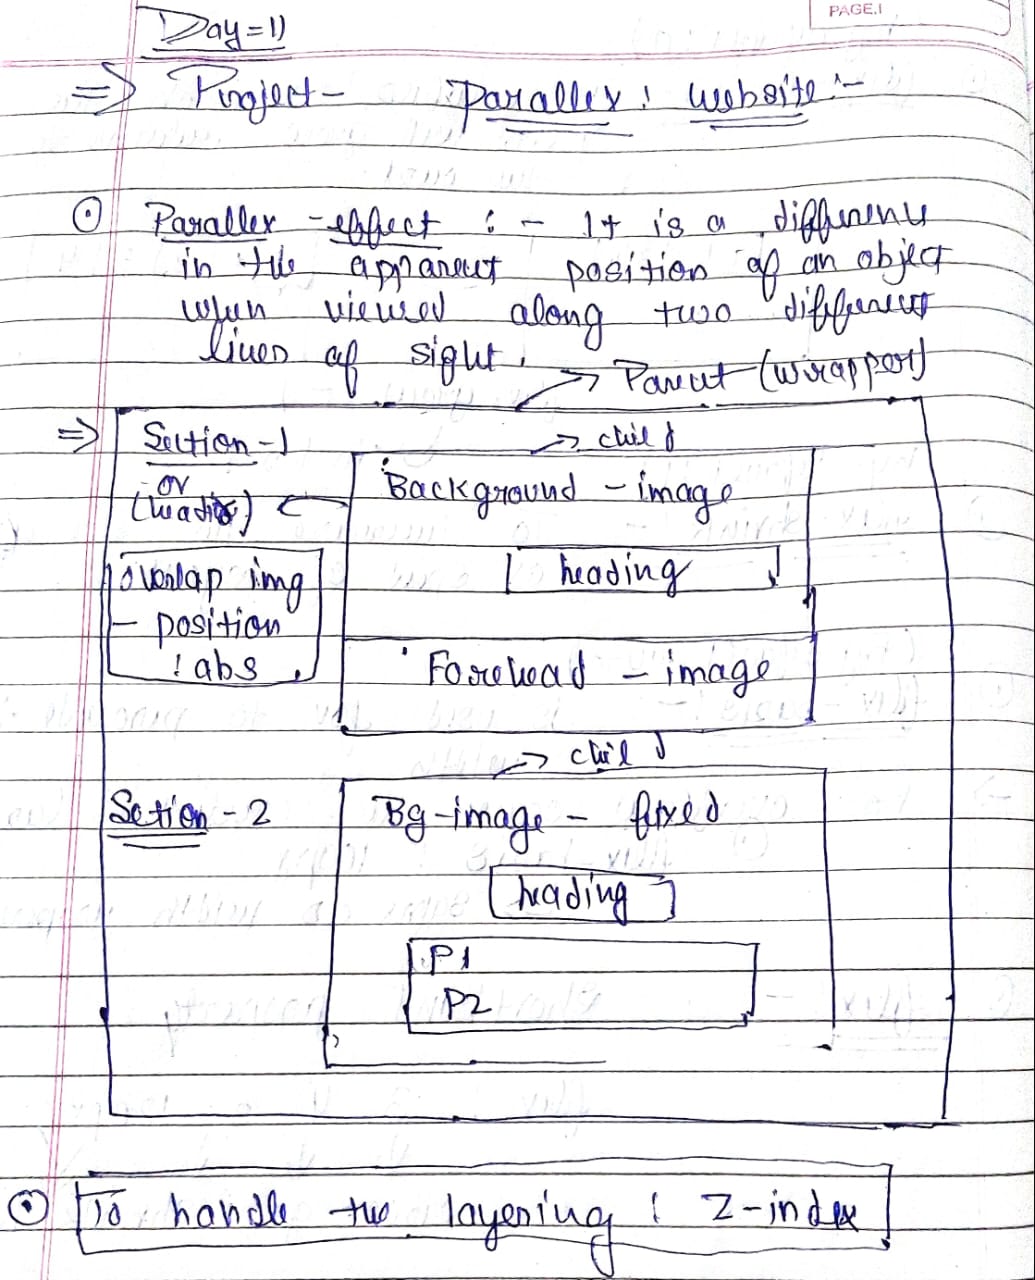 PAGE.
Day=11
⇒ Project - Parallex : website :-
⊙ Parallex - effect : - It is a difference
in the apparent position of an object
when viewed along two different
lines of sight.
→ Parent (wrapper)
⇒ Section-1
or
(header)
→ child
Background - image
heading
overlap img
- position
: abs
Forehead - image
→ child
Setion-2
Bg-image - fixed
heading
P1
P2
⊙ To handle the layering : Z-index